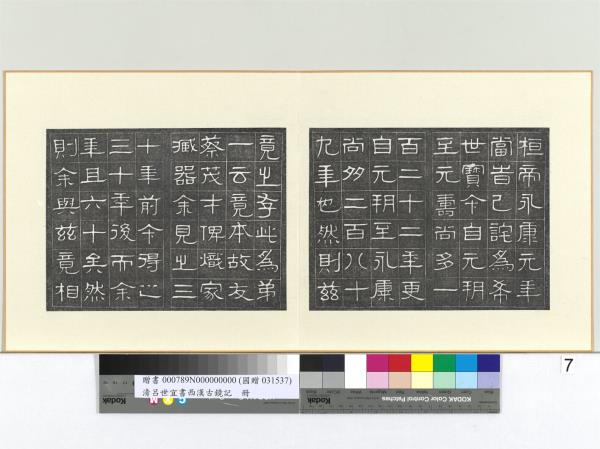 桓帝永康元年
當昔已詫為希
世寶今自元朔
至元壽尚多一
百二十二年更
自元朔至永康
尚多二百八十
九年也然則茲
竟之存此為弟
一云竟本故友
蔡茂才俾熾家
臧器余見之三
十年前今得之
三十年後而余
年且六十矣然
則余與茲竟相
7
贈書 000789N000000000 (國贈 031537)
清呂世宜書西漢古鏡記 冊
Kodak
KODAK Color Control Patches